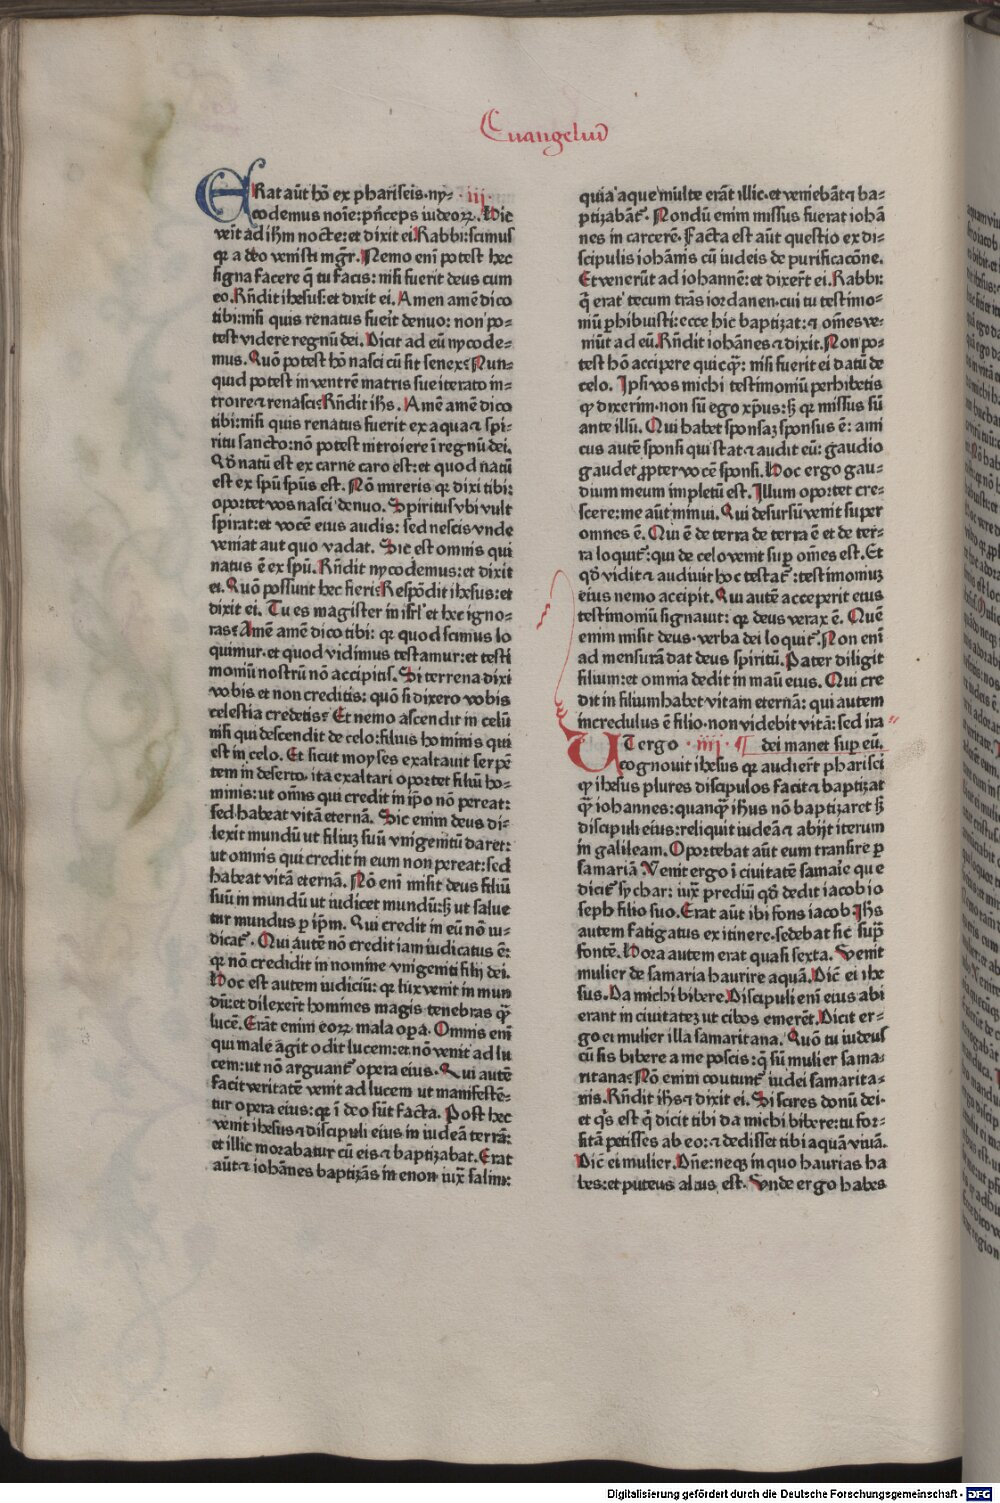 Euangeliū
ERat aūt hō ex phariseis· ny- ·iij·
codemus noīe: pn̄ceps iudeoꝝ. Hic
veīt ad ih̄m nocte: et dixit ei. Rabbi: scimus
qꝛ a deo venisti mgr̄. Nemo enī potest hec
signa facere q̄ tu facis: nisi fuerit deus cum
eo. Rn̄dit ihesus: et dixit ei. Amen amē dico
tibi: nisi quis renatus fueīt denuo: non po-
test videre regnū dei. Dicit ad eū nycode-
mus. Quō potest hō nasci cū sit senex? Nun-
quid potest in ventrē matris sue iterato in-
troire ⁊ renasci? Rn̄dit ih̄s. Amē amē dico
tibi: nisi quis renatus fuerit ex aqua ⁊ spi-
ritu sancto: nō potest nitroiere ī regnū dei.
Qd̄ natū est ex carne caro est: et quod natū
est ex spū spūs est. Nō mireris qꝛ dixi tibi:
oportet vos nasci denuo. Spiritus vbi vult
spirat: et vocē eius audis: sed nescis vnde
veniat aut quo vadat. Sic est omnis qui
natus ē ex spū. Rn̄dit nycodemus: et dixit
ei. Quō possunt hec fieri? Respōdit ihesus: et
dixit ei. Tu es magister in isrl̄ et hec igno-
ras? Amē amē dico tibi: qꝛ quod scimus lo
quimur· et quod vidimus testamur: et testi
moniū nostrū nō accipitis. Si terrena dixi
vobis et non creditis: quō si dixero vobis
celestia credetis? Et nemo ascendit in celū
nisi qui descendit de celo: filius hominis qui
est in celo. Et sicut moyses exaltauit serpē
tem in deserto· ita exaltari oportet filiū ho-
minis: ut om̄is qui credit in ip̄o nō pereat:
sed habeat vitā eternā. Sic enim deus di-
lexit mundū ut filiuꝫ suū vnigenitū daret:
ut omnis qui credit in eum non pereat: sed
habeat vitā eternā. Nō enī misit deus filiū
suū in mundū ut iudicet mundū: sꝫ ut salue
tur mundus ꝑ ip̄m. Qui credit in eū nō iu-
dicat᷑. Qui autē nō credit iam iudicatus ē:
qꝛ nō credidit in nomine vnigeniti filij dei.
Hoc est autem iudiciū: qꝛ lux venit in mun
dū: et dilexer̄t homines magis tenebras qꝫ̄
lucē. Erāt enim eoꝝ mala oꝑa. Omnis enī
qui male agit odit lucem: et nō venit ad lu
cem: ut nō arguant᷑ opera eius. Qui autē
facit veritatē venit ad lucem ut manifeste-
tur opera eius: qꝛ ī deo sūt facta. Post hec
venit ihesus ⁊ discipuli eius in iudeā terrā:
et illic morabatur cū eis ⁊ baptizabat. Erat
aūt ⁊ iohānes baptizās in enon iuxͣ salim:
quia aque multe erāt illic· et veniebāt ⁊ ba-
ptizabāt᷑. Nondū enim missus fuerat iohā
nes in carcerē. Facta est aūt questio ex di-
scipulis iohānis cū iudeis de purificacōne.
Et venerūt ad iohannē: et dixer̄t ei. Rabbi:
q̄ erat tecum trās iordanen· cui tu testimo-
niū ꝑhibuisti: ecce hic baptizat: ⁊ om̄es ve-
niūt ad eū. Rn̄dit iohānes ⁊ dixit. Non po-
test hō accipere quicqꝫ̄: nisi fuerit ei datū de
celo. Ipsi vos michi testimoniū perhibetis
qꝙ dixerim· non sū ego xp̄us: sꝫ qꝛ missus sū
ante illū. Qui habet sponsaꝫ sponsus ē: ami
cus autē sponsi qui stat ⁊ audit eū: gaudio
gaudet ꝓpter vocē sponsi. Hoc ergo gau-
dium meum impletū est. Illum oportet cre-
scere: me aūt minui. Qui desursū venit super
omnes ē. Qui ē de terra de terra ē et de ter-
ra loquit᷑: qui de celo venit suꝑ om̄es est. Et
qd̄ vidit ⁊ audiuit hoc testat᷑: testimoniuꝫ
eius nemo accipit. Qui autē acceperit eius
testimoniū signauit: qꝛ deus verax ē. Quē
enim misit deus· verba dei loquit᷑. Non enī
ad mensurā dat deus spiritū. Pater diligit
filium: et omnia dedit in manū eius. Qui cre
dit in filium habet vitam eternā: qui autem
incredulus ē filio· non videbit vitā: sed ira
UT ergo ·iiij· ¶ dei manet suꝑ eū.
cognouit ihesus qꝛ audier̄t pharisei
qꝙ ihesus plures discipulos facit ⁊ baptizat
qꝫ̄ iohannes: quanqꝫ̄ ih̄us nō baptizaret sꝫ
discipuli eius: reliquit iudeā ⁊ abijt iterum
in galileam. Oportebat aūt eum transire ꝑ
samariā. Venit ergo ī ciuitatē samarie que
dicit᷑ sychar: iuxͣ prediū qd̄ dedit iacob io
seph filio suo. Erat aūt ibi fons iacob. Ih̄s
autem fatigatus ex itinere· sedebat sic supͣ
fontē. Hora autem erat quasi sexta. Venit
mulier de samaria haurire aquā. Dic̄ ei ihe
sus. Da michi bibere. Discipuli enī eius abi
erant in ciuitateꝫ ut cibos emerēt. Dicit er-
go ei mulier illa samaritana. Quō tu iudeus
cū sis bibere a me poscis: q̄ sū mulier sama-
ritana? Nō enim coutunt᷑ iudei samarita-
nis. Rn̄dit ih̄s ⁊ dixit ei. Si scires donū dei·
et qͥs est qͥ dicit tibi da michi bibere: tu for-
sitā petisses ab eo: ⁊ dedisset tibi aquā viuā.
Dic̄ ei mulier. Dn̄e: neqꝫ in quo haurias ha
bes: et puteus altus est. Vnde ergo habes
Digitalisierung gefördert durch die Deutsche Forschungsgemeinschaft - DFG